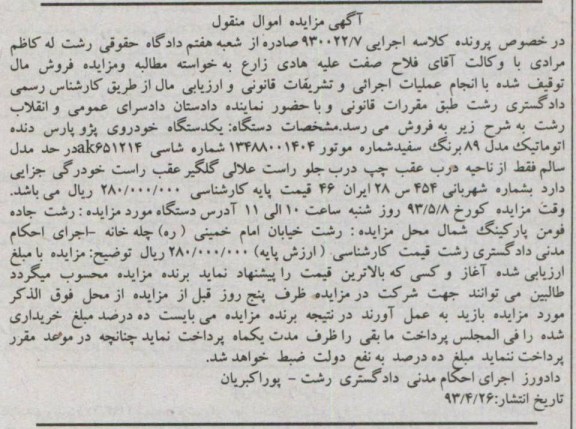 آگهی مزایده اموال منقول
در خصوص پرونده کلاسه اجرایی ۹۳۰۰۲۲/۷ صادره از شعبه هفتم دادگاه حقوقی رشت له کاظم
مرادی با وکالت آقای فلاح صفت علیه هادی زارع به خواسته مطالبه ومزایده فروش مال
توقیف شده با انجام عملیات اجرائی و تشریفات قانونی و ارزیابی مال از طریق کارشناس رسمی
دادگستری رشت طبق مقررات قانونی و با حضور نماینده دادستان دادسرای عمومی و انقلاب
رشت به شرح زیر به فروش می رسد.مشخصات دستگاه: یکدستگاه خودروی پژو پارس دنده
اتوماتیک مدل ۸۹ برنگ سفیدشماره موتور ۱۳۴۸۸۰۰۱۴۰۴ شماره شاسی ak۶۵۱۲۱۴در حد مدل
سالم فقط از ناحیه درب عقب چپ درب جلو راست علالی گلگیر عقب راست خوردگی جزایی
دارد بشماره شهربانی ۴۵۴ س ۲۸ ایران ۴۶ قیمت پایه کارشناسی ۲۸۰/۰۰۰/۰۰۰ ریال می باشد.
وقت مزایده کورخ ۹۳/۵/۸ روز شنبه ساعت ۱۰ الی ۱۱ آدرس دستگاه مورد مزایده : رشت جاده
فومن پارکینگ شمال محل مزایده : رشت خیابان امام خمینی ( ره) چله خانه –اجرای احکام
مدنی دادگستری رشت قیمت کارشناسی ( ارزش پایه) ۲۸۰/۰۰۰/۰۰۰ ریال توضیح: مزایده با مبلغ
ارزیابی شده آغاز و کسی که بالاترین قیمت را پیشنهاد نماید برنده مزایده محسوب میگردد
طالبین می توانند جهت شرکت در مزایده ظرف پنج روز قبل از مزایده از محل فوق الذکر
مورد مزایده بازید به عمل آورند در نتیجه برنده مزایده می بایست ده درصد مبلغ خریداری
شده را فی المجلس پرداخت ما بقی را ظرف مدت یکماه پرداخت نماید چنانچه در موعد مقرر
پرداخت ننماید مبلغ ده درصد به نفع دولت ضبط خواهد شد.
دادورز اجرای احکام مدنی دادگستری رشت – پوراکبریان
تاریخ انتشار:۹۳/۴/۲۶